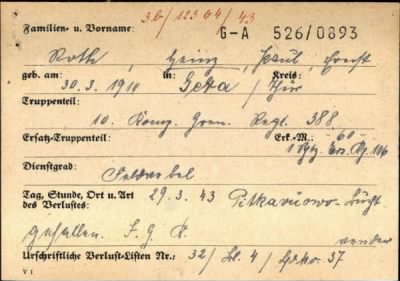 3b/12364/43
Familien- u. Vorname: G-A 526/0893
Roth, Heinz, Paul, Horst
geb. am: in: Kreis:
30. 3. 1910 Gera / Thür
Truppenteil:
10. Komp. Gren. Regt. 388
Ersatz-Truppenteil: Erk.-M.: -60-
1 Ers. 106
Dienstgrad:
Feldwebel
Tag, Stunde, Ort u. Art 29. 3. 43
des Verlustes:
gefallen.
Urschriftliche Verlust-Listen Nr.: 32/ Bl. 4 / 37
V 1